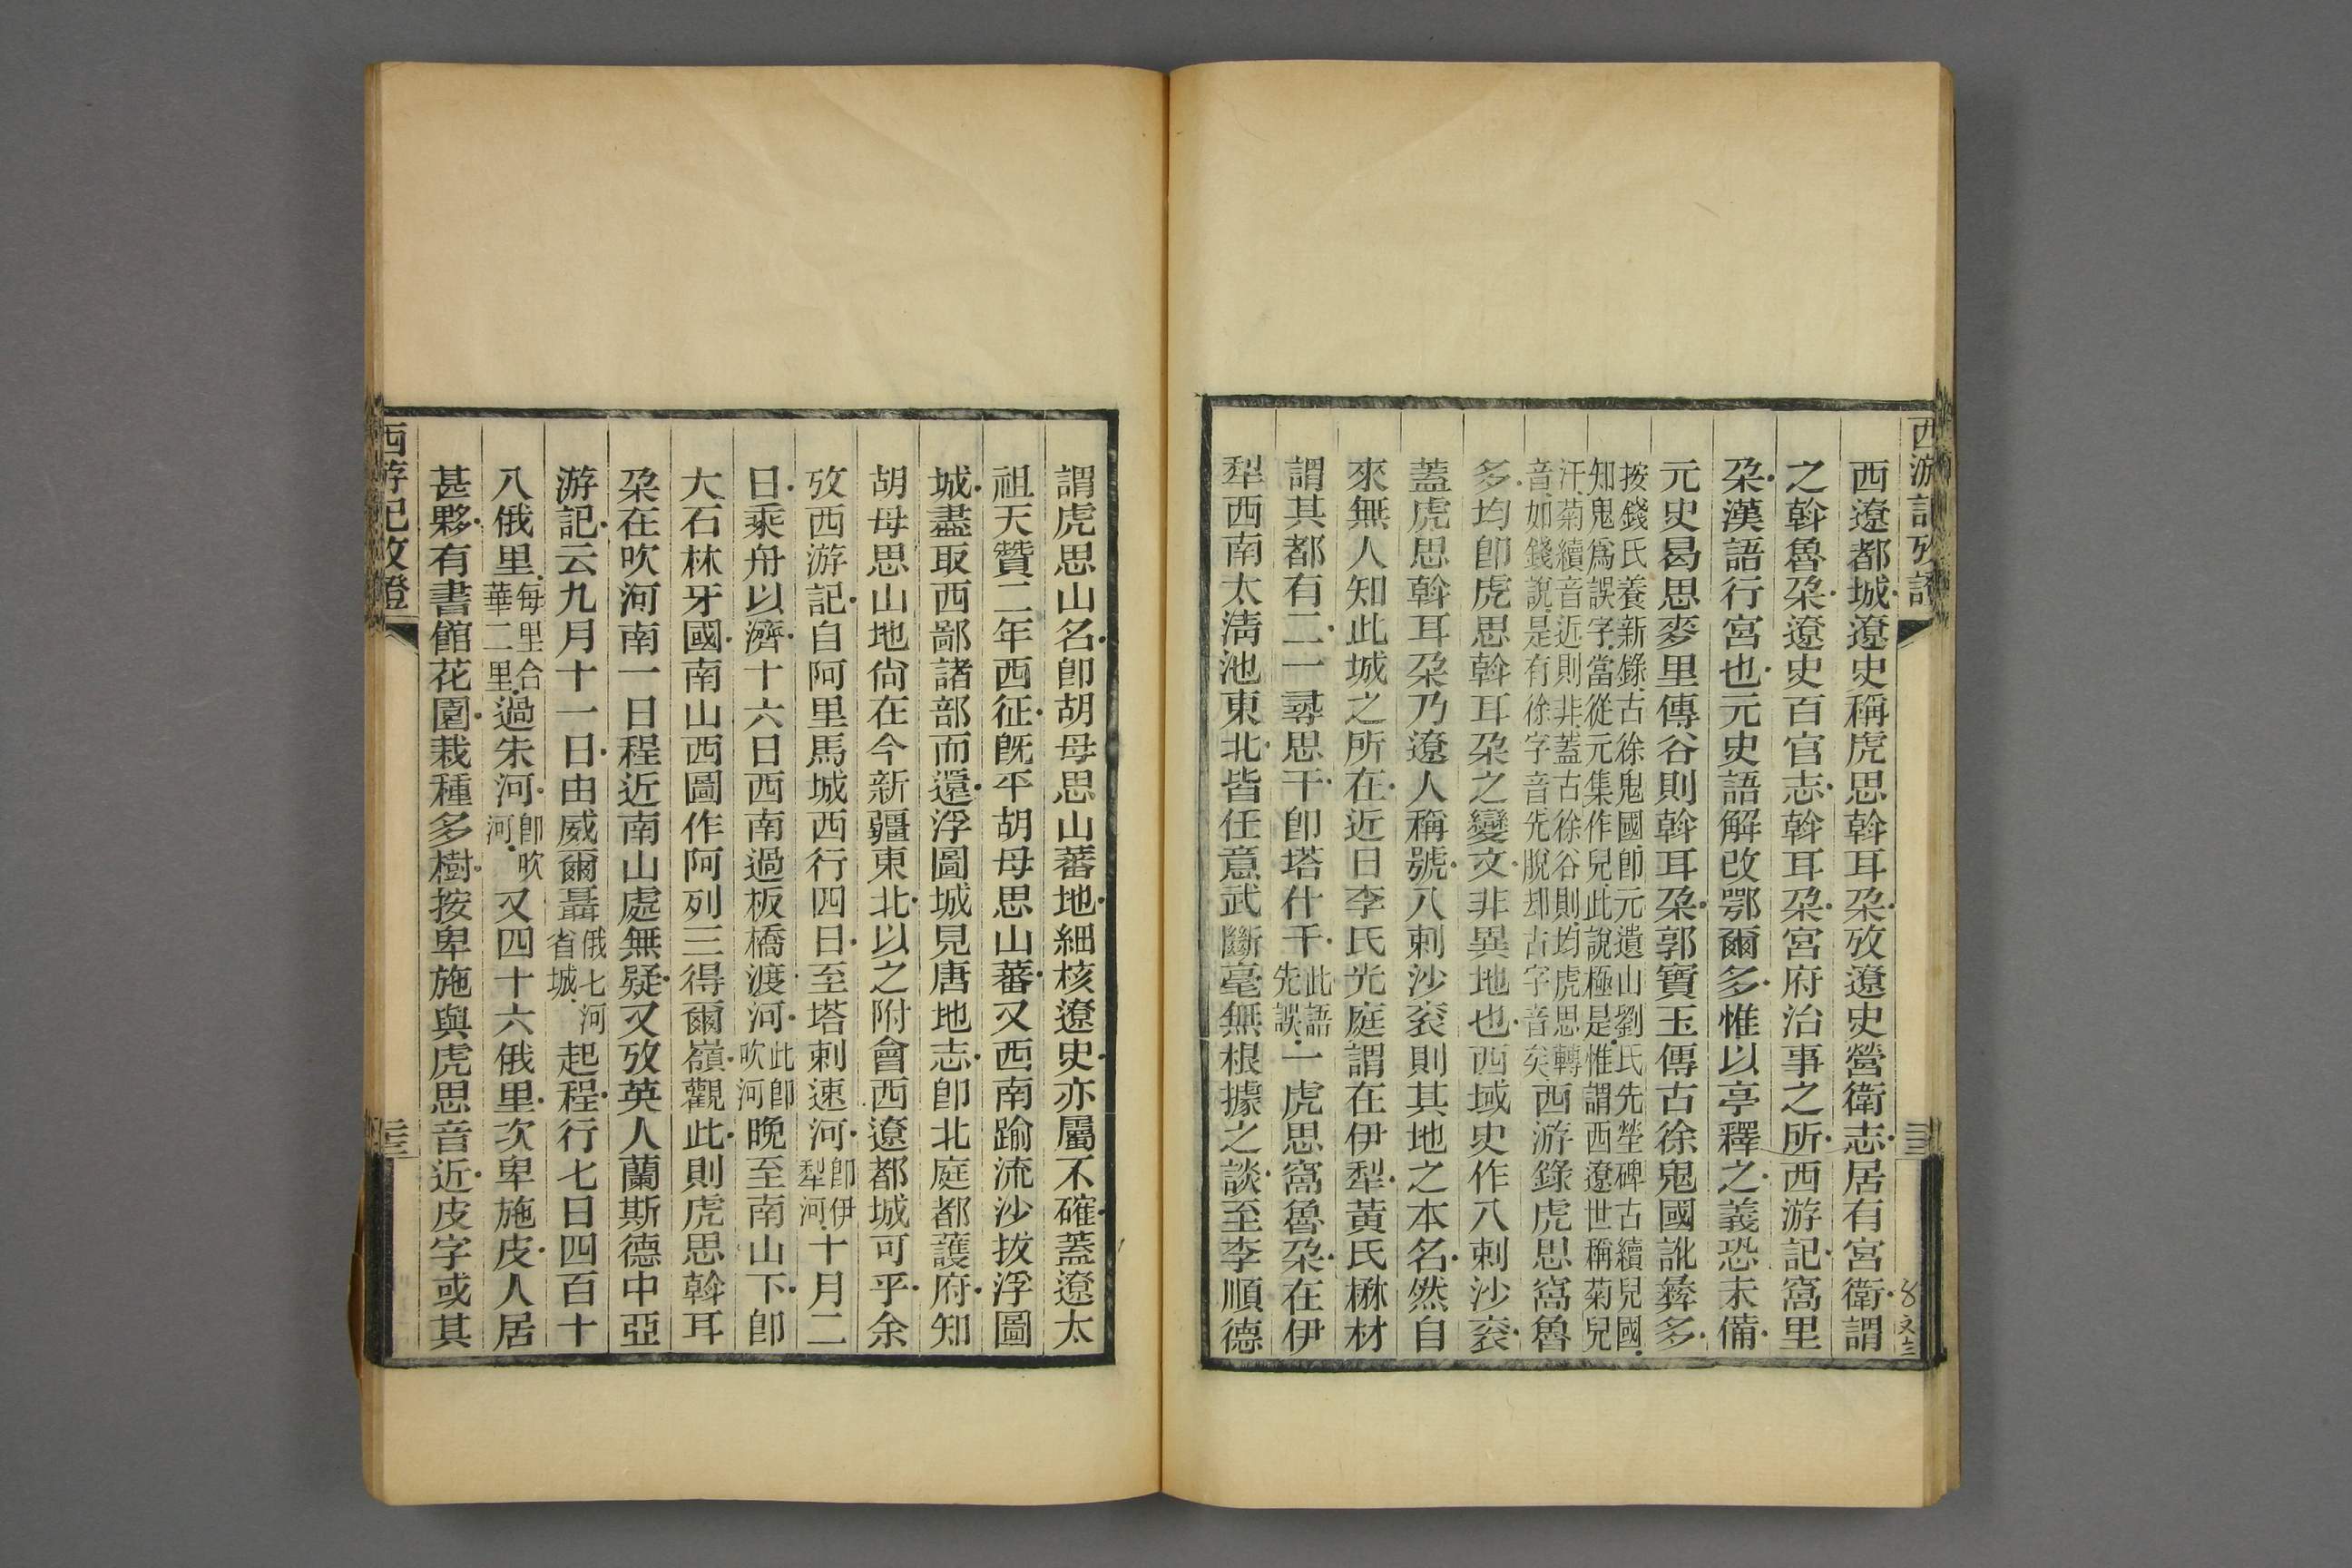 西游記攷證
西遼都城遼史稱虎思斡耳朶攷遼史營衛志居有宮衛謂
之斡魯朶遼史百官志斡耳朶宮府治事之所西游記窩里
朶漢語行宮也元史語解改鄂爾多惟以亭釋之義恐未備
元史曷思麥里傳谷則斡耳朶郭寶玉傳古徐鬼國訛彝多
按錢氏養新錄古徐鬼國卽元遺山劉氏先塋碑古續兒國
知鬼爲誤字當從元集作兒此說極是惟謂西遼世稱菊兒
汗菊續音近則非蓋古徐谷則均虎思轉
音如錢說是有徐字音先脫却古字音矣西游錄虎思窩魯
多均卽虎思斡耳朶之變文非異地也西域史作八剌沙衮
蓋虎思斡耳朶乃遼人稱號八剌沙衮則其地之本名然自
來無人知此城之所在近日李氏光庭謂在伊犁黃氏楙材
謂其都有二一尋思干卽塔什干此語先誤一虎思窩魯朶在伊
犁西南太淸池東北皆任意武斷毫無根據之談至李順德
三三
謂虎思山名卽胡母思山蕃地細核遼史亦屬不確蓋遼太
祖天贊二年西征旣平胡母思山蕃又西南踰流沙拔浮圖
城盡取西鄙諸部而還浮圖城見唐地志卽北庭都護府知
胡母思山地尙在今新疆東北以之附會西遼都城可乎余
攷西游記自阿里馬城西行四日至塔剌速河卽伊犁河十月二
日乘舟以濟十六日西南過板橋渡河此卽吹河晚至南山下卽
大石林牙國南山西圖作阿列三得爾嶺觀此則虎思斡耳
朶在吹河南一日程近南山處無疑又攷英人蘭斯德中亞
游記云九月十一日由威爾聶俄七河省城起程行七日四百十
八俄里每里合華二里過朱河卽吹河又四十六俄里次卑施皮人居
甚夥有書館花園栽種多樹按卑施與虎思音近皮字或其
西游記攷證
三三